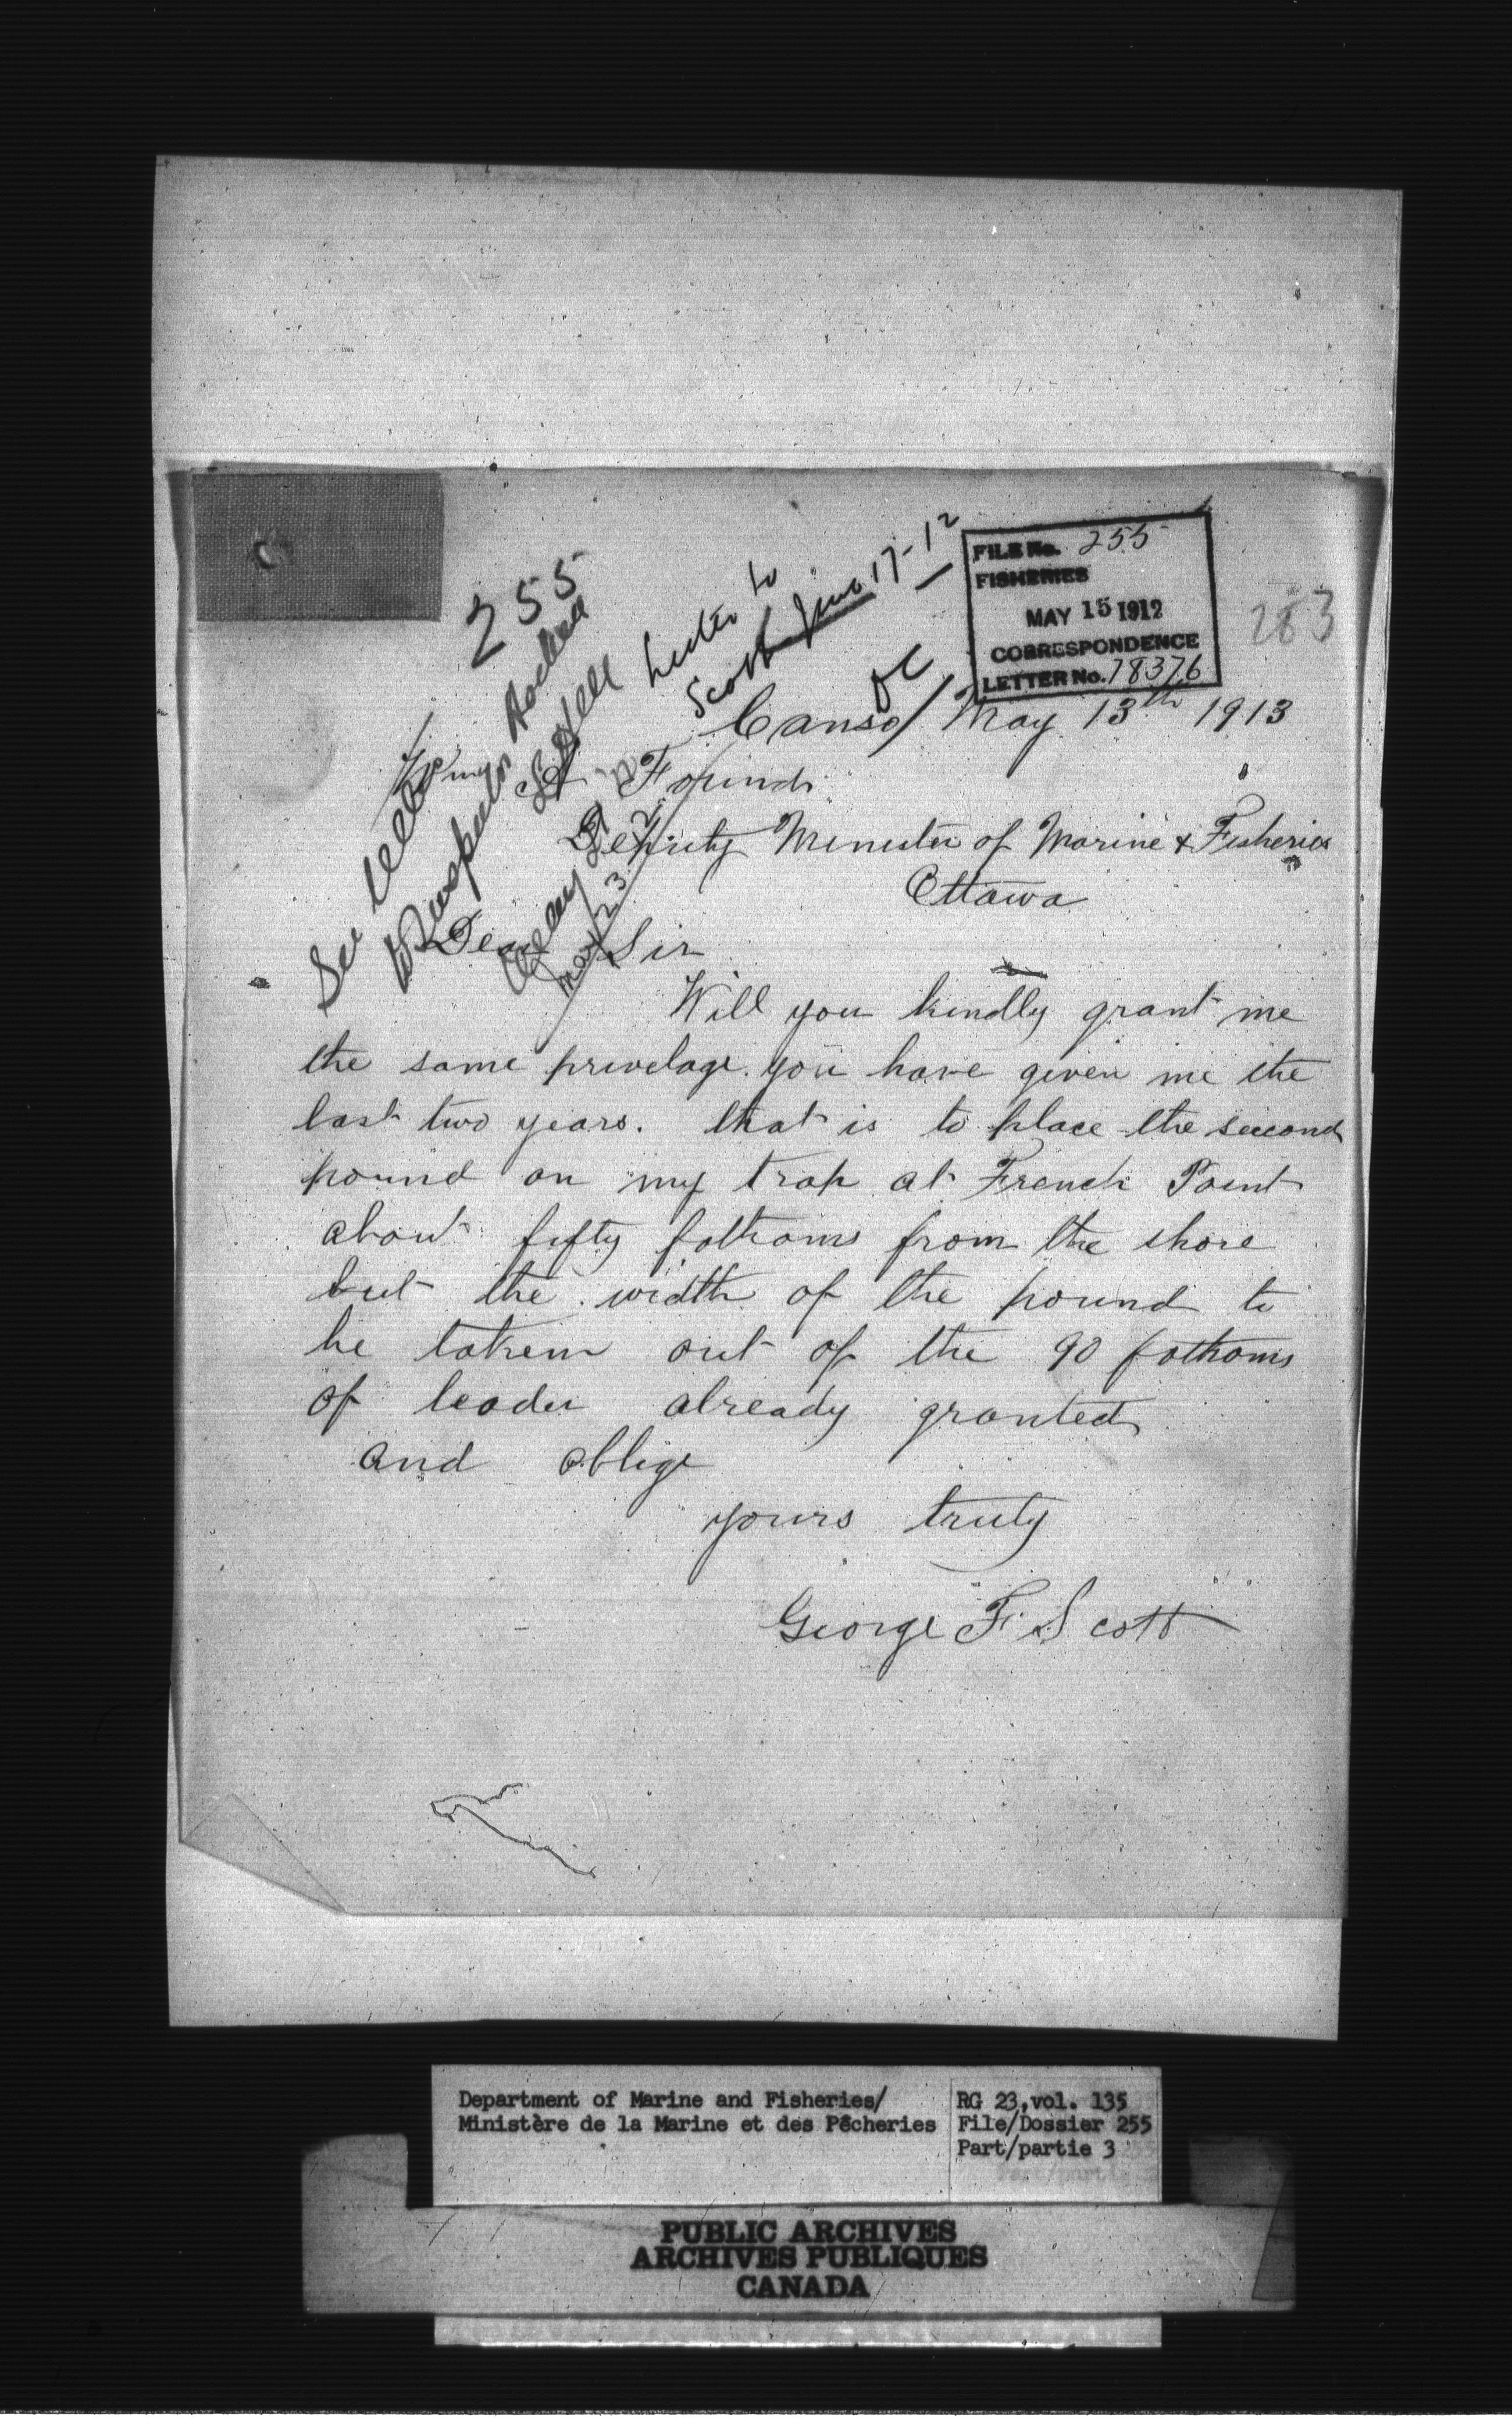 255
FILE No. 255
FISHERIES
MAY 15 1912
CORRESPONDENCE
LETTER No. 78376
283
See
to Inspector
letter to
Scott June 17-12
May 23
Canso May 13th 1913
Found
Deputy Minister of Marine & Fisheries
Ottawa
Dear Sir
Will you kindly grant me
the same privelage you have given me the
last two years. that is to place the second
pound on my trap at French Point
about fifty fathoms from the shore
but the width of the pound to
be taken out of the 90 fathoms
of leader already granted
and oblige
yours truly
George F. Scott
Department of Marine and Fisheries/
Ministère de la Marine et des Pêcheries
RG 23, vol. 135
File/Dossier 255
Part/partie 3
PUBLIC ARCHIVES
ARCHIVES PUBLIQUES
CANADA